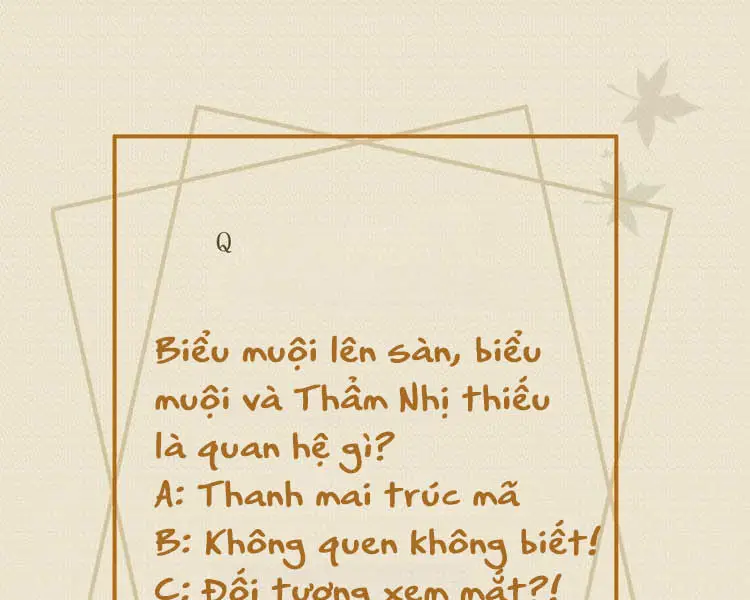 Q
Biểu muội lên sàn, biểu
muội và Thẩm Nhị thiếu
là quan hệ gì?
A: Thanh mai trúc mã
B: Không quen không biết!
C: Đối tượng xem mắt?!